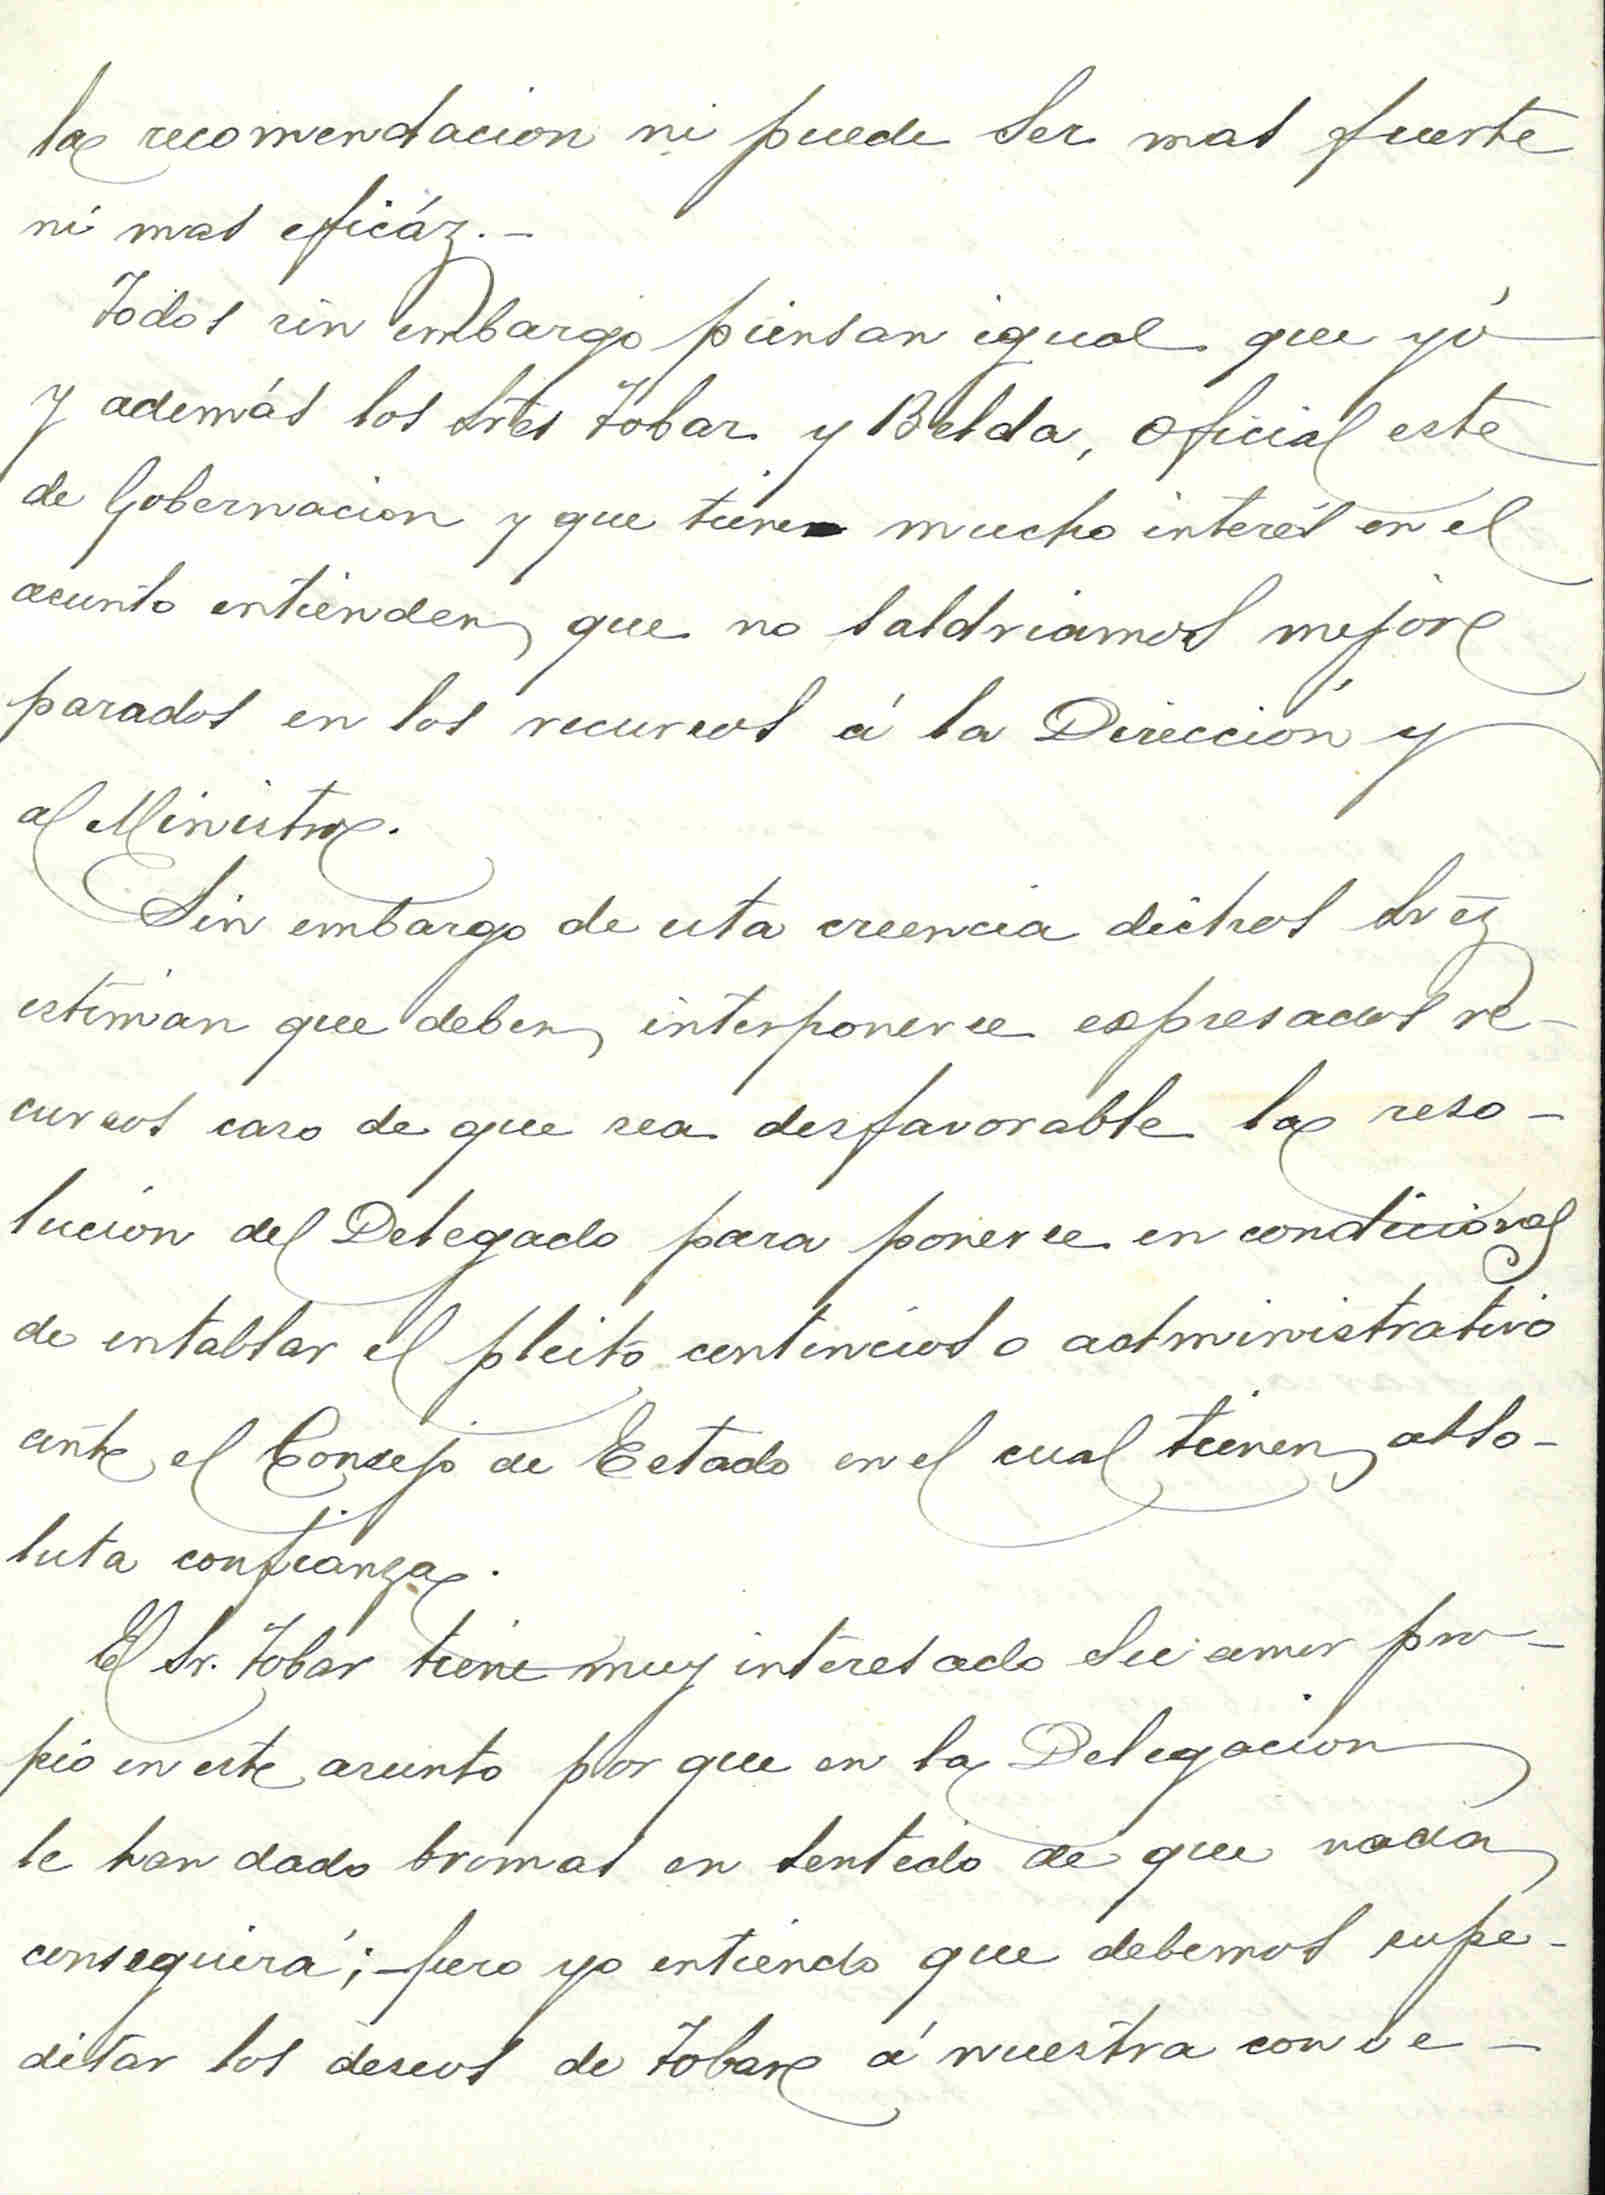 la recomendacion ni puede ser mas fuerte
ni mas eficáz.—
Todos sin embargo piensan igual que yó
y además los Sres Tobar y Belda, oficial este
de Gobernacion y que tiene mucho interés en el
asunto entienden que no saldriamos mejor
parados en los recursos á la Dirección y
al Ministro.
Sin embargo de esta creencia dichos Srez
estiman que deben interponerse expresados re-
cursos caso de que sea desfavorable la reso-
lución del Delegado para ponerse en condiciones
de entablar el pleito contencioso administrativo
ante el Consejo de Estado en el cual tienen abso-
luta confianza.
El Sr. Tobar tiene muy interesado su amor pro-
pio en este asunto por que en la Delegacion
le han dado bromas en sentido de que nada
conseguirá; pero yo entiendo que debemos supe-
ditar los deseos de Tobar á nuestra conve-